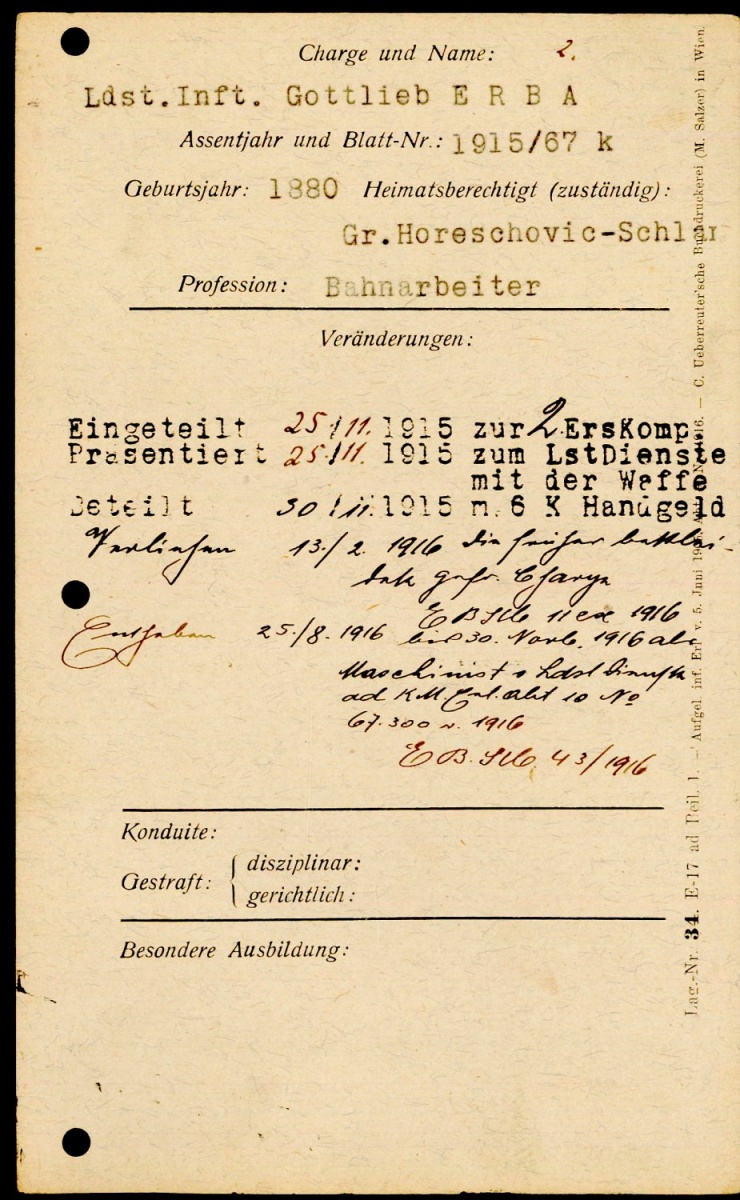 Charge und Name: 2.
Ldst.Inft. Gottlieb E R B A
Assentjahr und Blatt-Nr.: 1915/67 k
Geburtsjahr: 1880 Heimatsberechtigt (zuständig):
Gr.Horeschovic-Schlan
Profession: Bahnarbeiter
Veränderungen:
Eingeteilt 25/11. 1915 zur 2 ErsKomp.
Präsentiert 25/11. 1915 zum LstDienste
mit der Waffe
Beteilt 30/11. 1915 m. 6 K Handgeld
Verliehen 13./2. 1916 die früher beklei-
dete gefr. Charge
E B Stb 11 ex 1916
Enthoben 25./8. 1916 bis 30. Novb. 1916 als
Maschinist v Ldst dienste
ad K.M. Erl. Abt 10 No
67.300 v. 1916
E B. Stb. 43/1916
Konduite:
Gestraft: disziplinar:
gerichtlich:
Besondere Ausbildung:
Lag.-Nr. 34. E-17 ad Beil. 1. — Aufgel. inf. Erl. v. 5. Juni 1916. — C. Ueberreuter'sche Buchdruckerei (M. Salzer) in Wien.